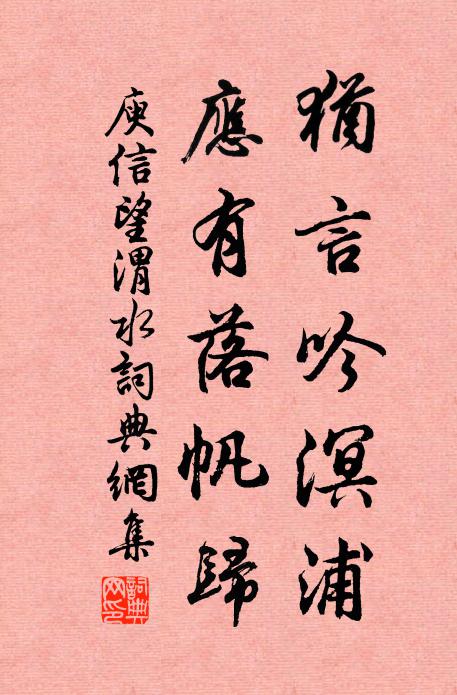 猶言吟溟浦
應有落帆歸
庾信望渭水詞典網集